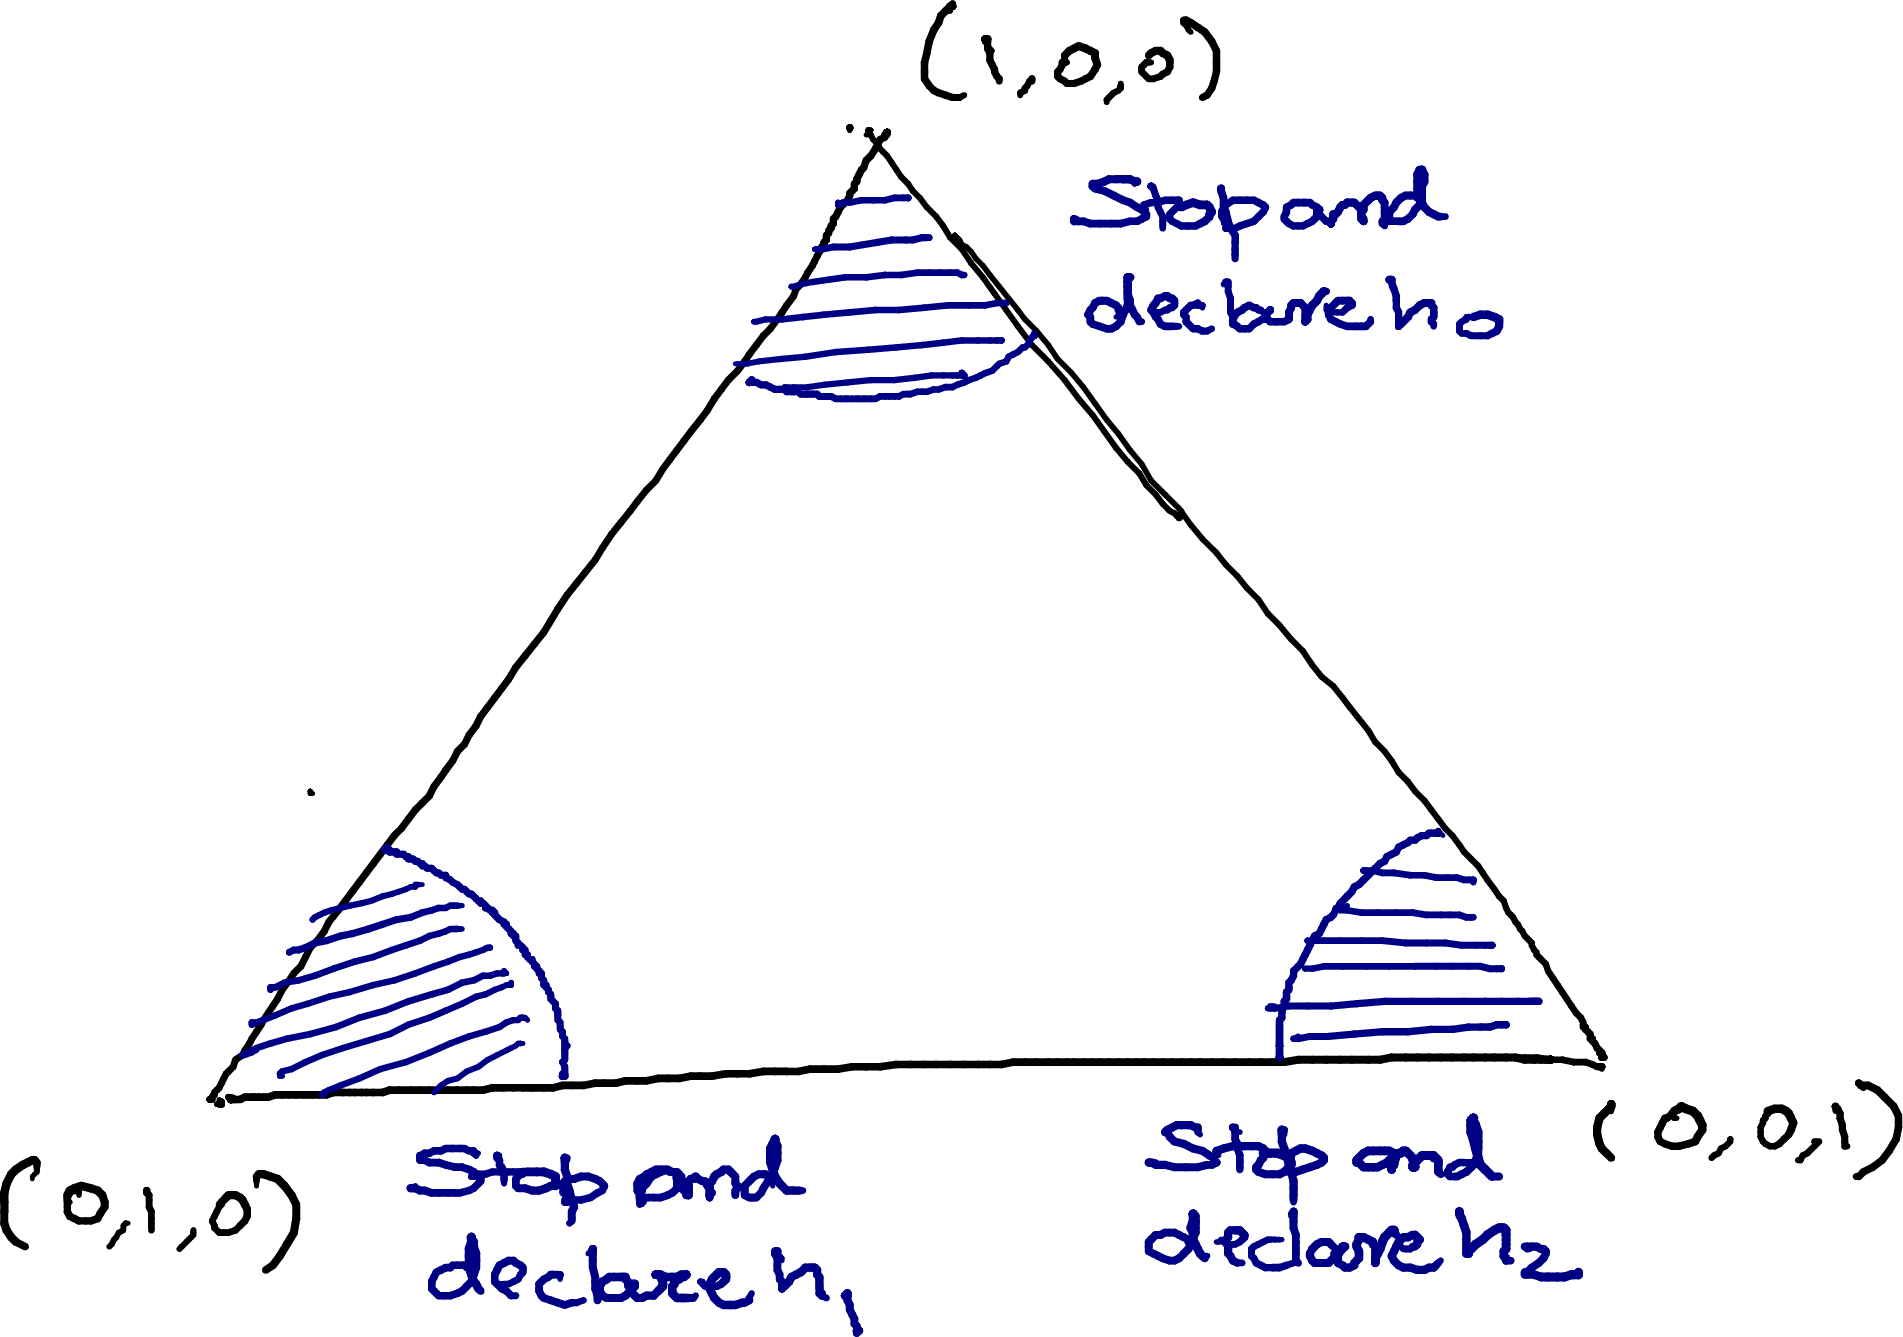 (1,0,0)
Stop and
declare h0
(0,1,0)
Stop and
declare h1
Stop and
declare h2
(0,0,1)